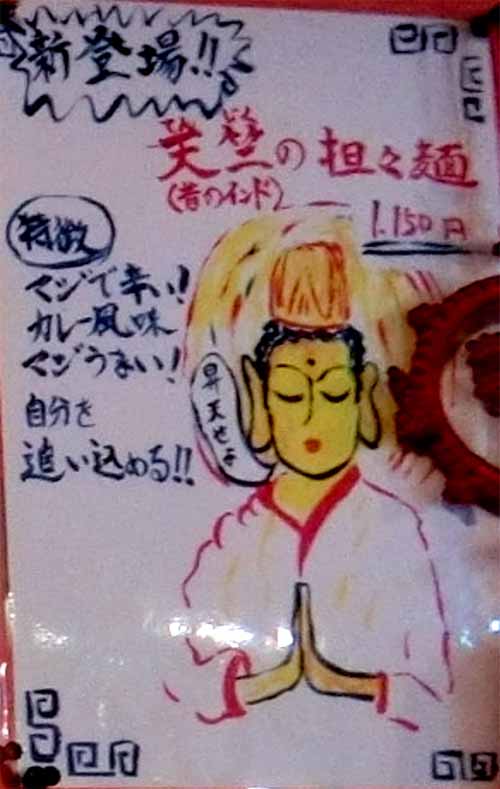 新登場!!
天竺の担々麺
(昔のインド)
1.150円
特徴
マジで辛い!
カレー風味
マジうまい!
自分を
追い込める!!
昇天せよ